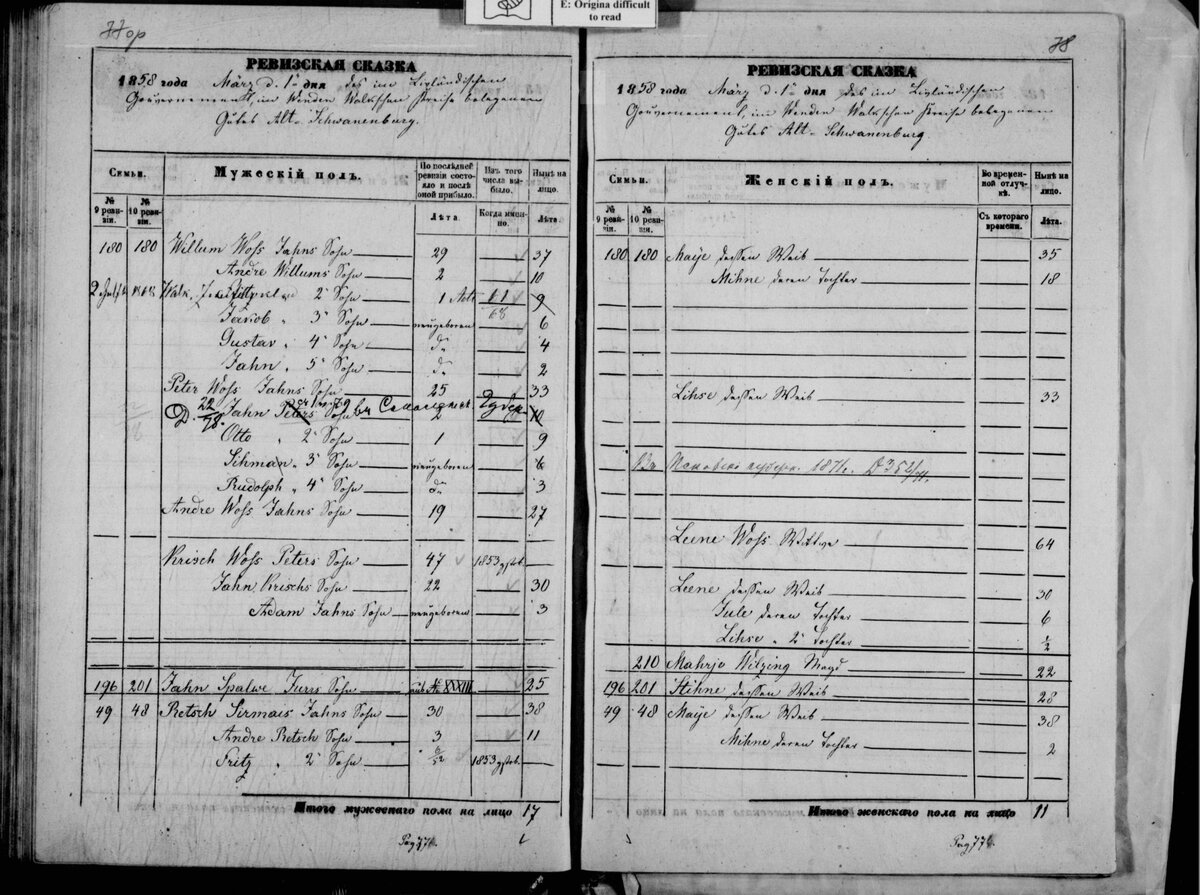 E: Origina difficult
to read
77 ор
РЕВИЗСКАЯ СКАЗКА
1858 года März d. 1ª дня des im Livländischen
Gouvernement, im Wenden Walkschen Kreise belegenen
Gutes Alt-Schwanenburg.
Семьи.
Мужескій полъ.
По последней ревизіи состояло и послѣ оной прибыло.
Изъ того числа выбыло.
Нынѣ на лицо.
№ 9 ревизіи.
№ 10 ревизіи.
Лѣта.
Когда именно.
Лѣта.
180 180 Willum Wohs Jahns Sohn 29 37
Andre Willums Sohn 2 10
2ª Sohn 1 9
Jakob " 3ª Sohn neugeboren 6
Gustav " 4ª Sohn dº 4
Jahn " 5ª Sohn dº 2
Peter Wohs Jahns Sohn 25 33
D. 22/78. Jahn Peters Sohn 2 10
Otto " 2ª Sohn 1 9
Sihman " 3ª Sohn neugeboren 6
Rudolph " 4ª Sohn dº 3
Andre Wohs Jahns Sohn 19 27
Krisch Wohs Peters Sohn 47 1853 gestorb.
Jahn Krischs Sohn 22 30
Adam Jahns Sohn neugeboren 3
196 201 Jahn Spalwe Jurris Sohn aus № XXXIII 25
49 48 Retsch Sirmais Jahns Sohn 30 38
Andre Retsch Sohn 3 11
Fritz " 2ª Sohn 6/52 1853 gestorb.
Итого мужескаго пола на лицо 17
78
РЕВИЗСКАЯ СКАЗКА
1858 года März d. 1ª дня des im Livländischen
Gouvernement, im Wenden Walkschen Kreise belegenen
Gutes Alt-Schwanenburg.
Семьи.
Женскій полъ.
Во временной отлучкѣ.
Нынѣ на лицо.
№ 9 ревизіи.
№ 10 ревизіи.
Съ котораго времени.
Лѣта.
180 180 Maije dessen Weib 35
Mihne deren Tochter 18
Lihse dessen Weib 33
1871. D 352/71.
Leene Wohs Wittwe 64
Leene dessen Weib 30
Jule deren Tochter 6
Lihse " 2ª Tochter ½
210 Mahrje Witzing Magd 22
196 201 Stihne dessen Weib 28
49 48 Maije dessen Weib 38
Mihne deren Tochter 2
Итого женскаго пола на лицо 11